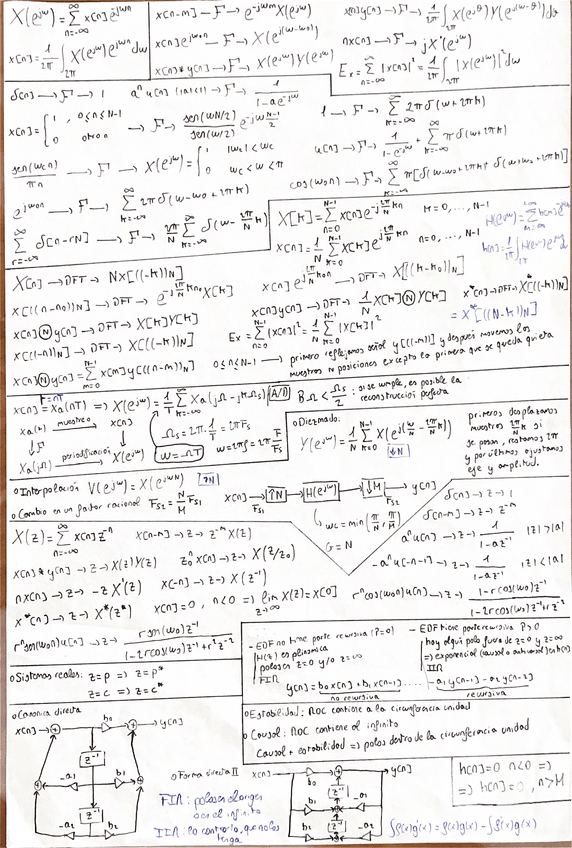 X(e^{jω}) = Σ_{n=-∞}^{∞} x[n] e^{-jωn}
x[n] = 1/2π ∫_{2π} X(e^{jω}) e^{jωn} dω
x[n-m] — F → e^{-jωm} X(e^{jω})
x[n] e^{jω₀n} — F → X(e^{j(ω-ω₀)})
x[n] * y[n] — F → X(e^{jω}) Y(e^{jω})
x[n] y[n] — F → 1/2π ∫_{2π} X(e^{jθ}) Y(e^{j(ω-θ)}) dθ
n x[n] — F → j X'(e^{jω})
Ex = Σ_{n=-∞}^{∞} |x[n]|² = 1/2π ∫_{2π} |X(e^{jω})|² dω
δ[n] → F → 1
aⁿ u[n] (|a|<1) → F → 1/(1-ae^{-jω})
x[n] = { 1, 0≤n≤N-1
0 otro n → F → sen(ωN/2)/sen(ω/2) e^{-jω(N-1)/2}
1 → F → Σ_{k=-∞}^{∞} 2πδ(ω+2πk)
u[n] → F → 1/(1-e^{-jω}) + Σ_{k=-∞}^{∞} πδ(ω+2πk)
sen(ωcn)/πn → F → X(e^{jω}) = { 1 |ω|<ωc
0 ωc<ω<π
cos(ω₀n) → F → Σ_{k=-∞}^{∞} π[δ(ω-ω₀+2πk) + δ(ω+ω₀+2πk)]
e^{jω₀n} → F → Σ_{k=-∞}^{∞} 2πδ(ω-ω₀+2πk)
Σ_{r=-∞}^{∞} δ[n-rN] → F → 2π/N Σ_{k=-∞}^{∞} δ(ω - 2π/N k)
X[k] = Σ_{n=0}^{N-1} x[n] e^{-j 2π/N kn} k=0,...,N-1
x[n] = 1/N Σ_{k=0}^{N-1} X[k] e^{j 2π/N kn} n=0,...,N-1
X[n] → DFT → N x[((-k))N]
x[((n-n₀))N] → DFT → e^{-j 2π/N kn₀} X[k]
x[n] Ⓝ y[n] → DFT → X[k] Y[k]
x[((-n))N] → DFT → X[((-k))N]
x[n] Ⓝ y[n] = Σ_{m=0}^{N-1} x[m] y[((n-m))N]
x[n] e^{j 2π/N k₀n} → DFT → X[((k-k₀))N]
x[n] y[n] → DFT → 1/N X[k] Ⓝ Y[k]
x*[n] → DFT → X*[((-k))N]
= X*[((N-k))N]
Ex = Σ_{n=0}^{N-1} |x[n]|² = 1/N Σ_{k=0}^{N-1} |X[k]|²
0≤n≤N-1 → primero reflejamos señal y[((-m))N] y después movemos los
muestras N posiciones excepto la primera que se queda quieta
x[n] = xa(nT) ⇒ X(e^{jω}) = 1/T Σ_{k=-∞}^{∞} Xa(jΩ - jkΩs) A/D
xa(t) muestreo x[n]
Xa(jΩ) periodificación X(e^{jω})
Ωs = 2π·1/T = 2πFs
ω = ΩT
ω = 2πf = 2π F/Fs
BΩ < Ωs/2 : si se cumple, es posible la
reconstrucción perfecta
o Diezmado:
Y(e^{jω}) = 1/N Σ_{k=0}^{N-1} X(e^{j(ω/N - 2π/N k)})
↓N
primero desplazamos
muestras 2π/N k si
se pasan, restamos 2π
y por último ajustamos
eje y amplitud.
o Interpolación V(e^{jω}) = X(e^{jωN}) ↑N
o Cambio en un factor racional Fs2 = N/M Fs1
x[n] → ↑N → H(e^{jω}) → ↓M → y[n]
Fs1 Fs2
ωc = min(π/N, π/M)
G = N
X(z) = Σ_{n=-∞}^{∞} x[n] z^{-n}
x[n-m] → z → z^{-m} X(z)
x[n] * y[n] → z → X(z) Y(z)
z₀ⁿ x[n] → z → X(z/z₀)
n x[n] → z → -z X'(z)
x[-n] → z → X(z^{-1})
x*[n] → z → X*(z*)
x[n]=0, n<0 ⇒ lim_{z→∞} X(z) = x[0]
δ[n] → z → 1
δ[n-m] → z → z^{-m}
aⁿ u[n] → z → 1/(1-az^{-1}) |z|>|a|
-aⁿ u[-n-1] → z → 1/(1-az^{-1}) |z|<|a|
rⁿ cos(ω₀n) u[n] → z → (1-r cos(ω₀) z^{-1})/(1-2r cos(ω₀) z^{-1} + r² z^{-2})
rⁿ sen(ω₀n) u[n] → z → r sen(ω₀) z^{-1}/(1-2r cos(ω₀) z^{-1} + r² z^{-2})
o Sistemas reales: z=p ⇒ z=p*
z=c ⇒ z=c*
- EDF no tiene parte recursiva (P=0)
H(z) es polinomica
polos en z=0 y/o z=∞
FIR
- EDF tiene parte recursiva P>0
hay algún polo fuera de z=0 y z=∞
⇒ exponencial (causal o anticausal) en h[n]
IIR
y[n] = b₀x[n] + b₁x[n-1] ..... -a₁y[n-1] - a₂y[n-2]
no recursiva recursiva
o Estabilidad: ROC contiene a la circunferencia unidad
o Causal: ROC contiene el infinito
Causal + estabilidad ⇒ polos dentro de la circunferencia unidad
o Canonica directa
x[n] b₀ y[n]
z⁻¹
-a₁ b₁
z⁻¹
-a₂ b₂
o Forma directa II
x[n] y[n]
b₀
z⁻¹
b₁ -a₁
z⁻¹
b₂ -a₂
h[n]=0 n<0 ⇒
⇒ h[n]=0, n>M
FIR: polos en el origen
o en el infinito
IIR: lo contrario, que no los
tenga
∫f(x)g'(x) = f(x)g(x) - ∫f'(x)g(x)